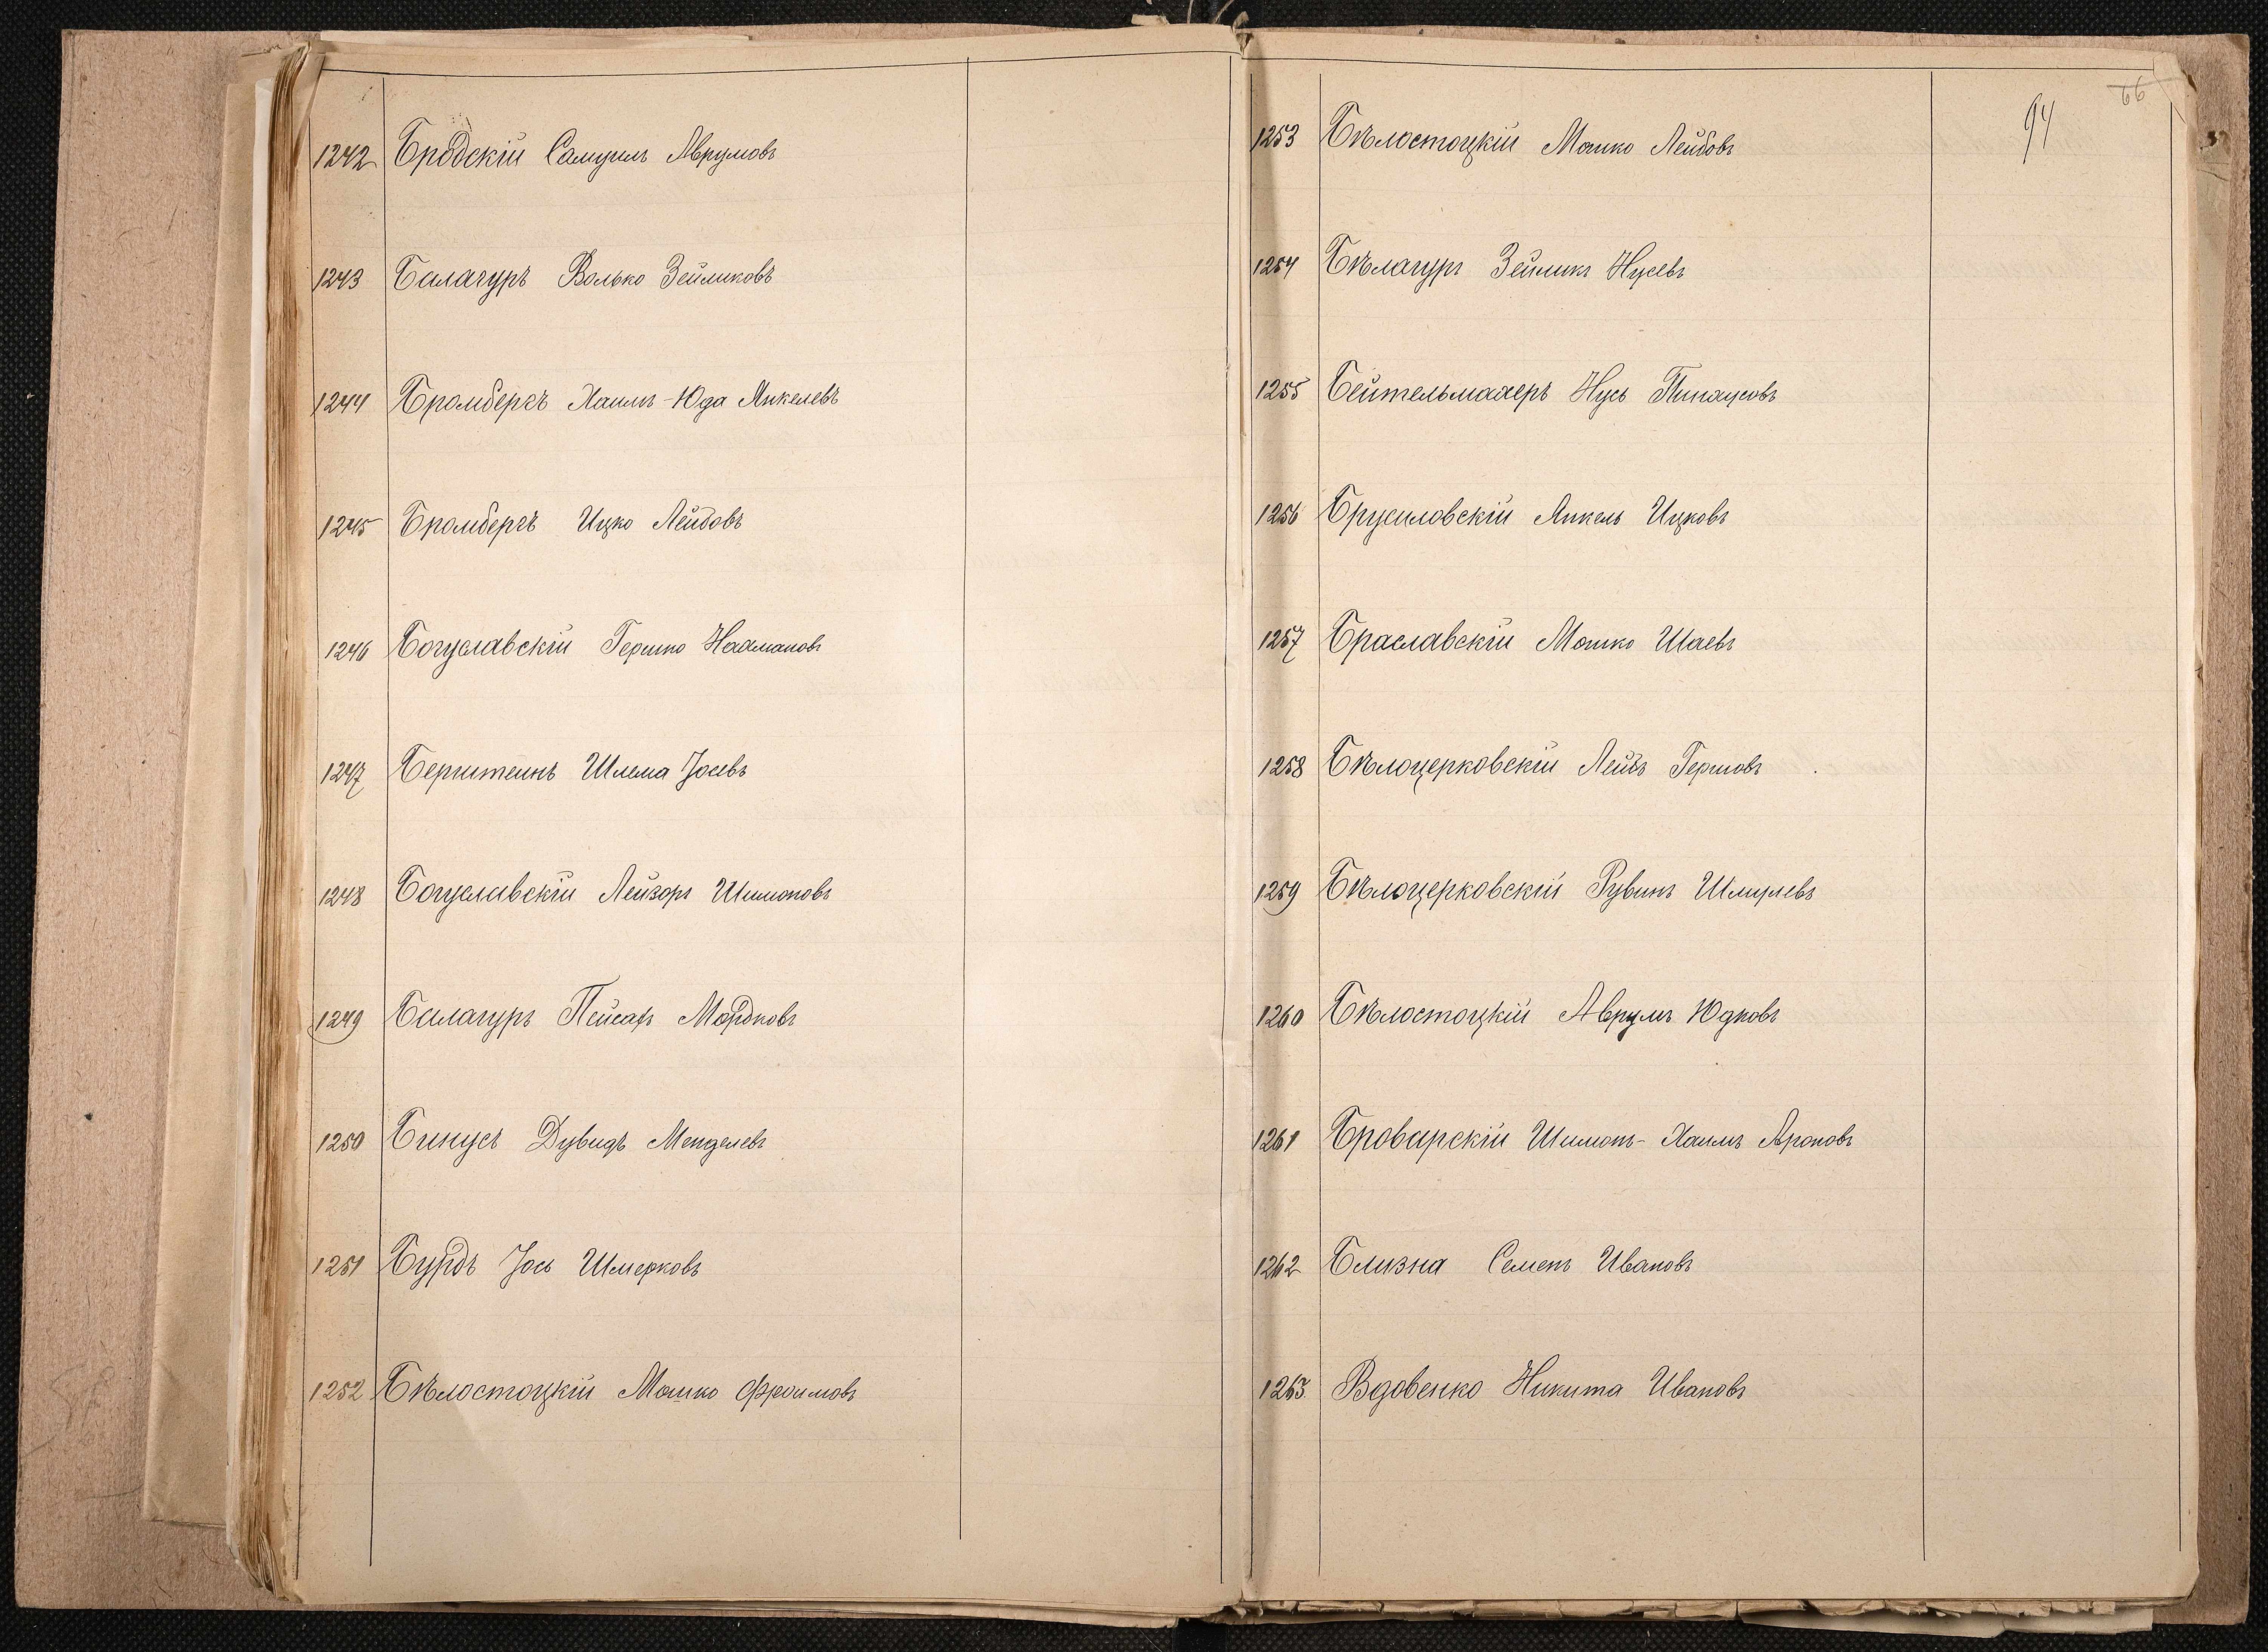 1242 Бродскій Самуилъ Аврумовъ
1243 Балагуръ Волько Зейликовъ
1244 Бромбергъ Хаимъ-Юда Янкелевъ
1245 Бромбергъ Ицко Лейбовъ
1246 Богуславскій Гершко Нахмановъ
1247 Бернштейнъ Шлема Іосевъ
1248 Богуславскій Лейзоръ Шимоновъ
1249 Балагуръ Пейсахъ Мордковъ
1250 Бинусъ Дувидъ Менделевъ
1251 Бурдъ Іось Шмерковъ
1252 Бѣлостоцкій Мошко Фроимовъ
66
94
1253 Бѣлостоцкій Мошко Лейбовъ
1254 Бѣлагуръ Зейликъ Нусевъ
1255 Бейтельмахеръ Нусь Пинхусовъ
1256 Брусиловскій Янкель Ицковъ
1257 Браславскій Мошко Шаевъ
1258 Бѣлоцерковскій Лейбъ Гершовъ
1259 Бѣлоцерковскій Рувинъ Шмулевъ
1260 Бѣлостоцкій Аврумъ Юдковъ
1261 Броварскій Шимонъ-Хаимъ Ароновъ
1262 Близна Семенъ Ивановъ
1263 Вдовенко Никита Ивановъ